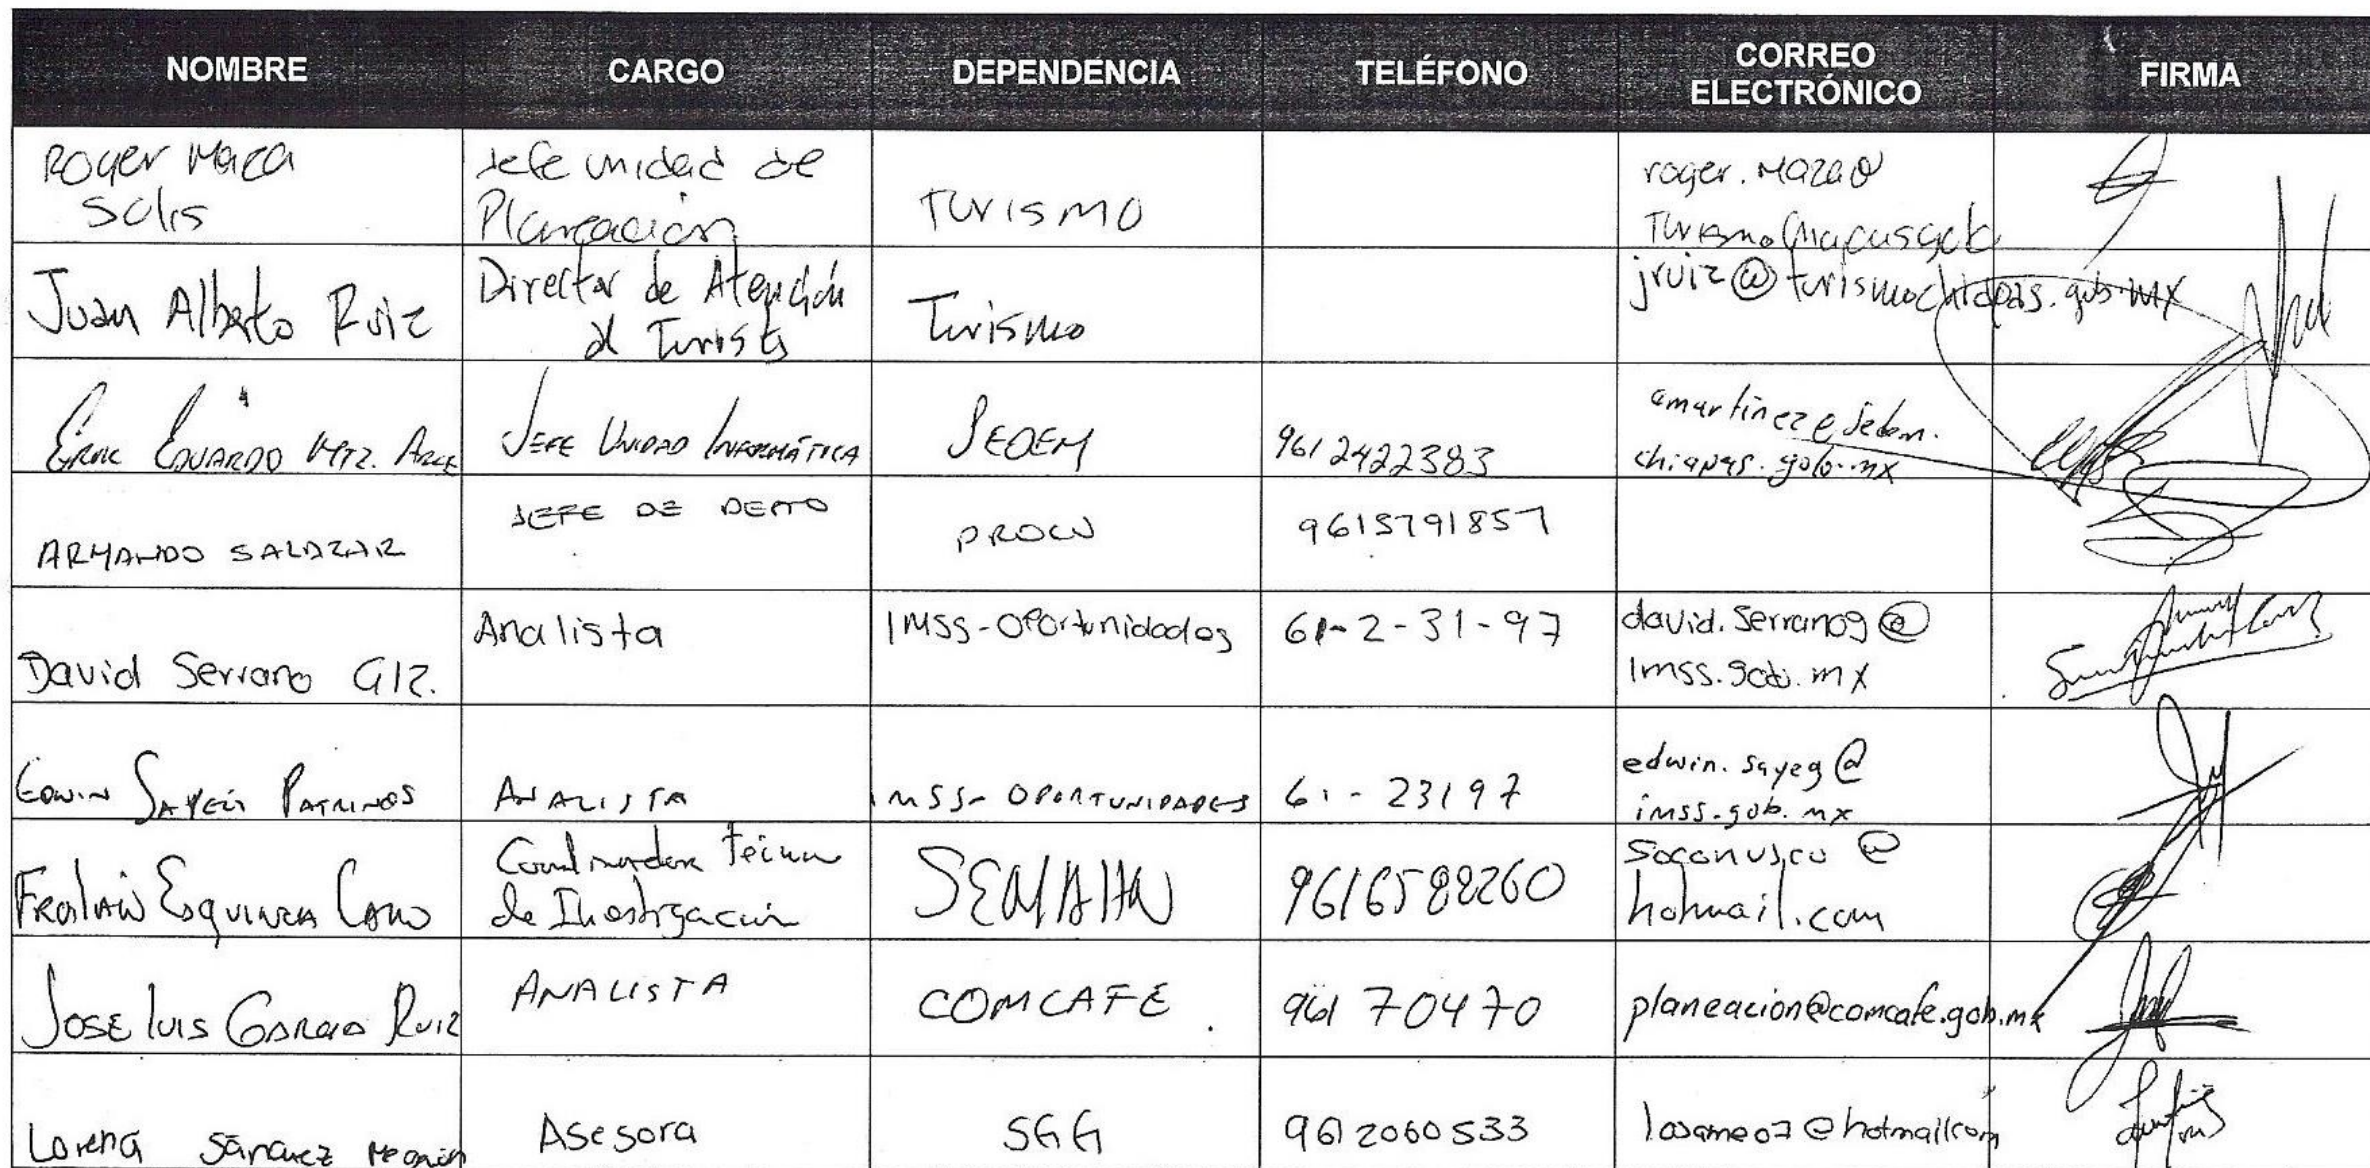 NOMBRE CARGO DEPENDENCIA TELÉFONO CORREO ELECTRÓNICO FIRMA
Roger Maza Solis Jefe Unidad de Planeación Turismo roger.maza@
Juan Alberto Ruiz Director de Atención al Turista Turismo jruiz@turismochiapas.gob.mx
Eduardo Mtz. Arce Jefe Unidad Informática SEDEM 961 2422383 chiapas.gob.mx
ARMANDO SALAZAR JEFE DE DEPTO 9615791857
David Serrano Glz. Analista IMSS-Oportunidades 61-2-31-97 david.serranog@ imss.gob.mx
Edwin Sayeg Patrinos Analista IMSS-Oportunidades 61-23197 edwin.sayeg@ imss.gob.mx
Esquinca Cano de Investigación SEMAHN 9616588260 soconusco@ hotmail.com
Jose Luis Garcia Ruiz ANALISTA COMCAFE. 961 70470 planeacion@comcafe.gob.mx
Lorena Sánchez Asesora SGG 961 2060533 losame07@hotmail.com